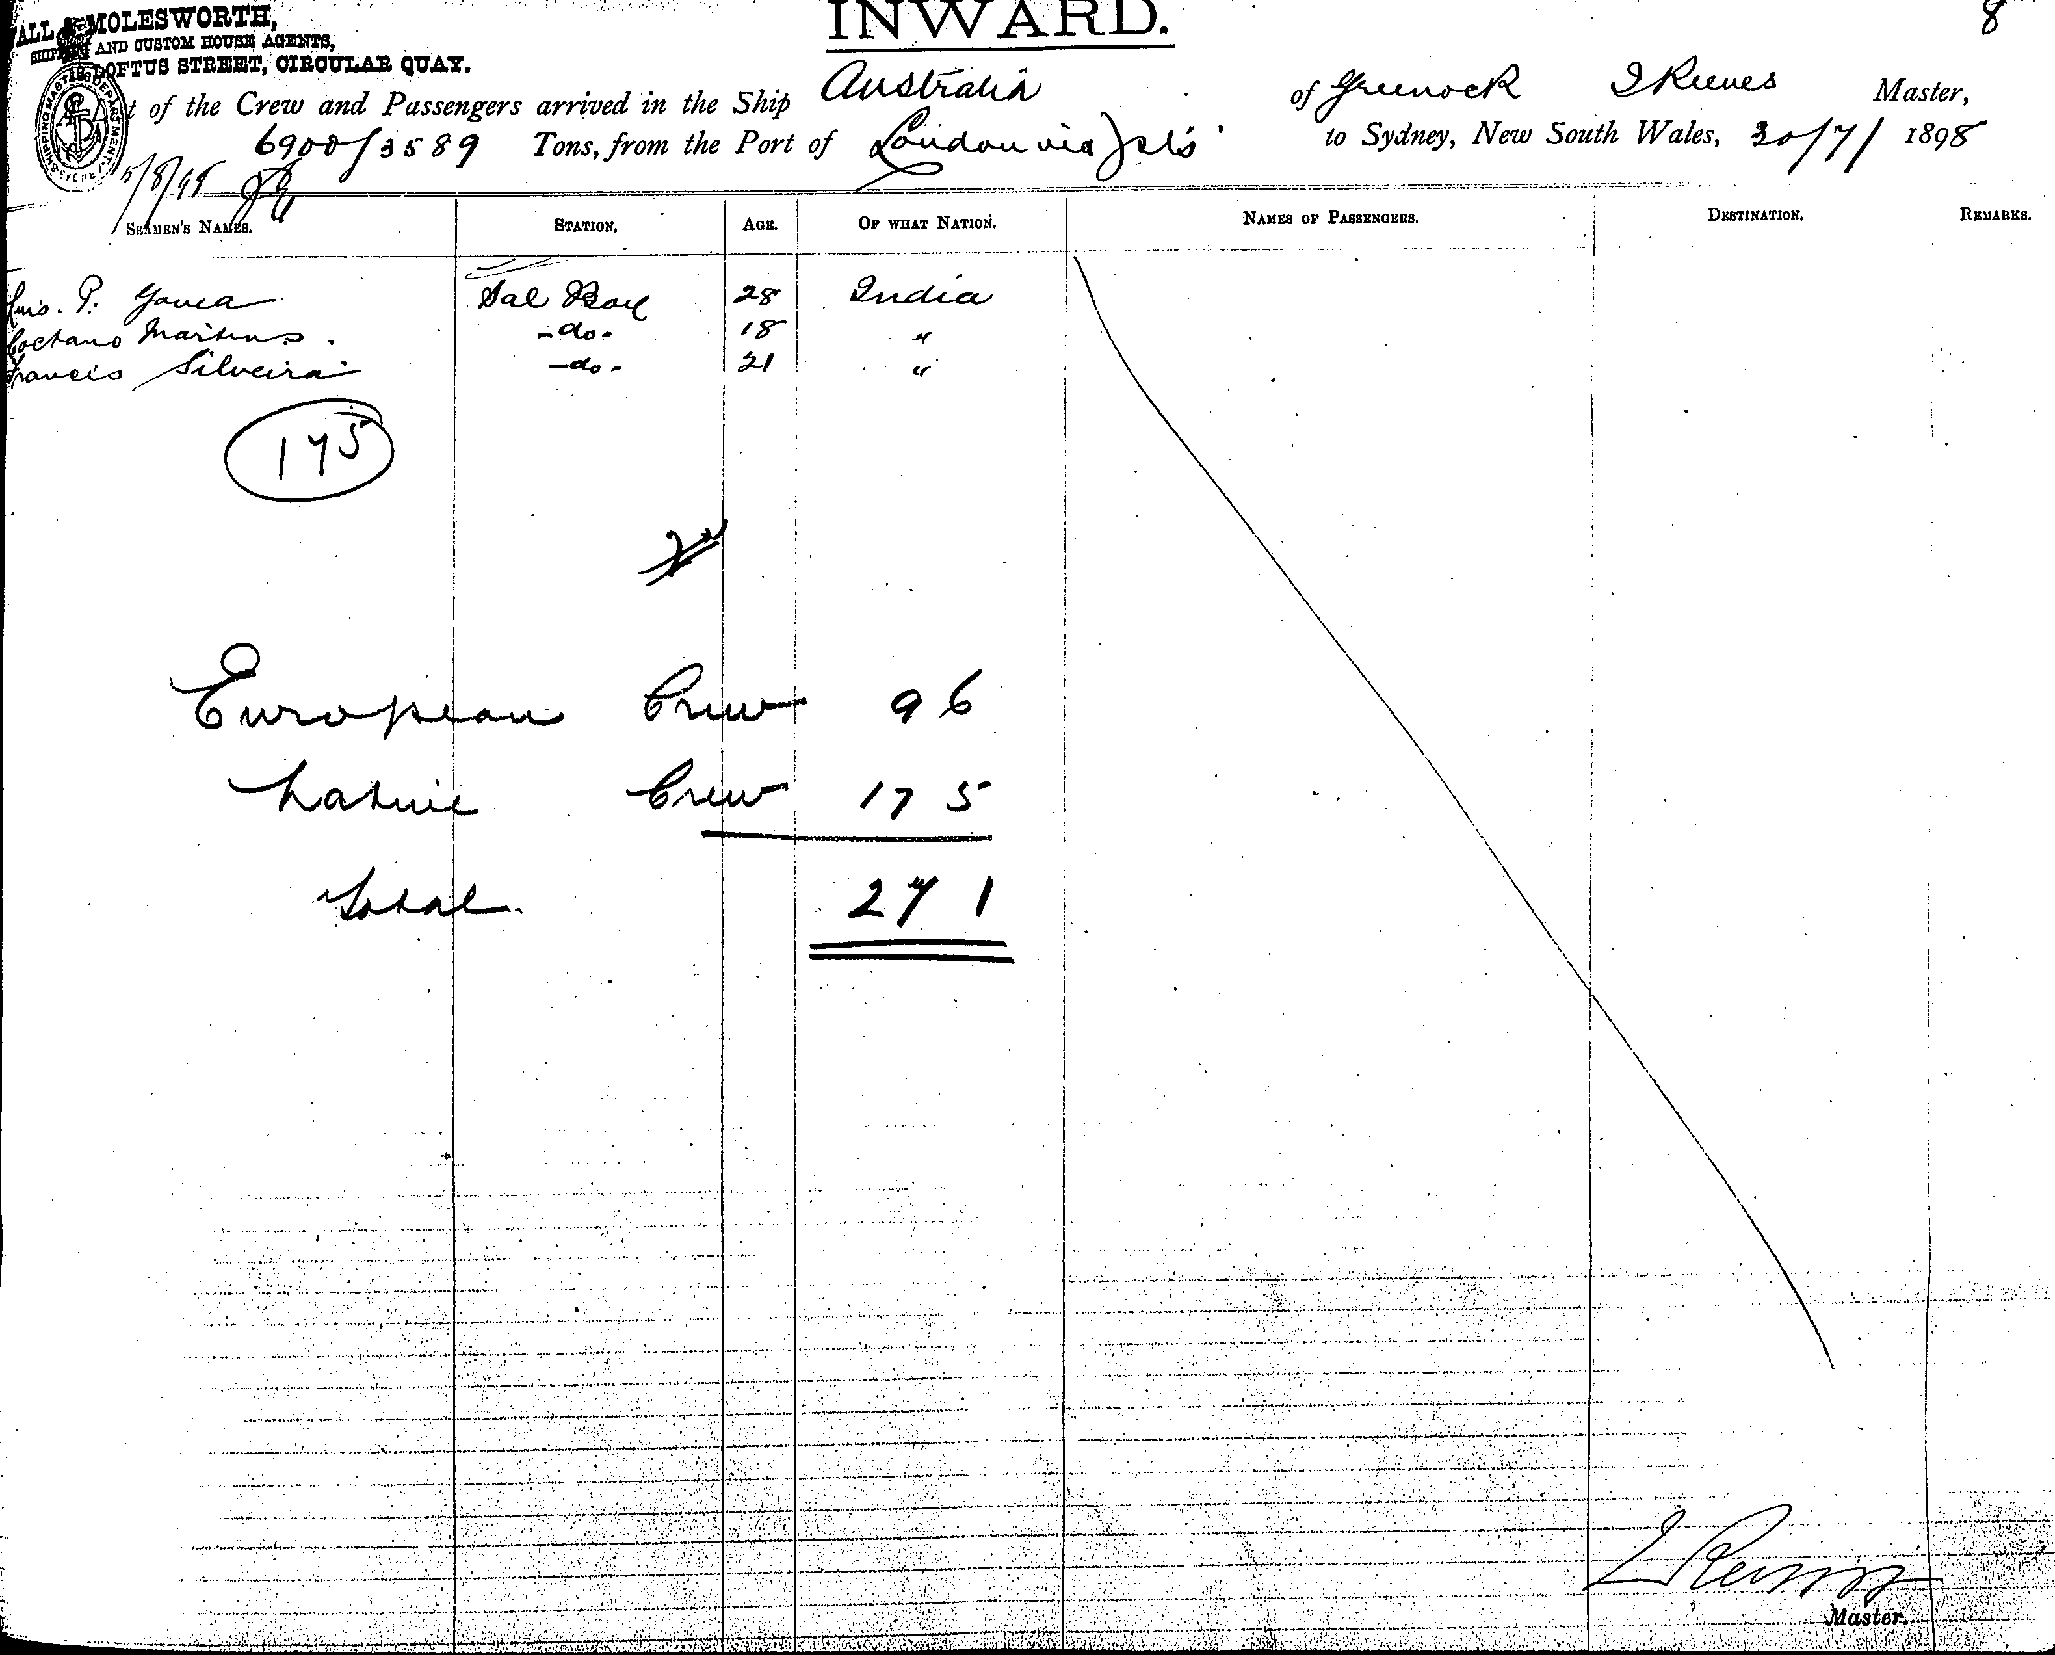 INWARD.
8
ALL & MOLESWORTH,
AND CUSTOM HOUSE AGENTS,
LOFTUS STREET, CIRCULAR QUAY.
of the Crew and Passengers arrived in the Ship Australia of Greenock Reeves Master,
6900/3589 Tons, from the Port of London via to Sydney, New South Wales, 30/7/1898
SHIPPING MASTER'S DEPARTMENT
SYDNEY
5/8/98
SEAMEN'S NAMES. STATION. AGE. OF WHAT NATION. NAMES OF PASSENGERS. DESTINATION. REMARKS.
P. Sal Boy 28 India
Caetano Martins. -do- 18 "
Francis Silveira -do- 21 "
175
European Crew 96
Native Crew 175
Total 271
Reeves
Master.